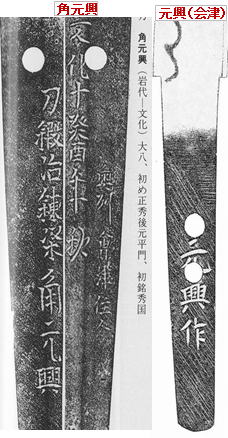 角元興
元興(会津)
角元興(岩代―文化)大八、初め正秀後元平門、初銘秀国
元興作
奥州會津住人
化十癸酉年秋
刀鍛冶錬 角元興